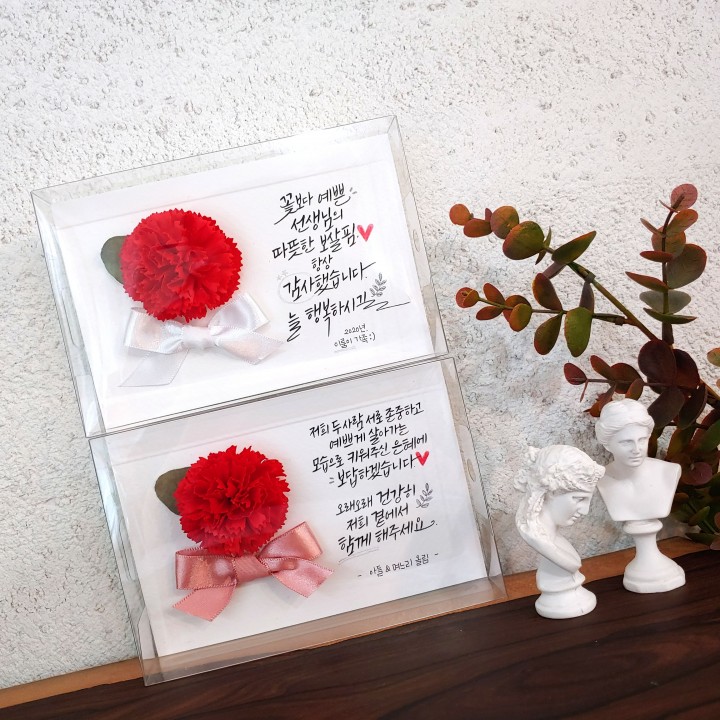 꽃보다 예쁜
선생님의
따뜻한 보살핌
항상
감사했습니다.
늘 행복하시길
2020년
이쁠이 가족:)
저희 두사람 서로 존중하고
예쁘게 살아가는
모습으로 키워주신 은혜에
보답하겠습니다
오래오래 건강히
저희 곁에서
함께 해주세요.
- 아들 & 며느리 올림 -